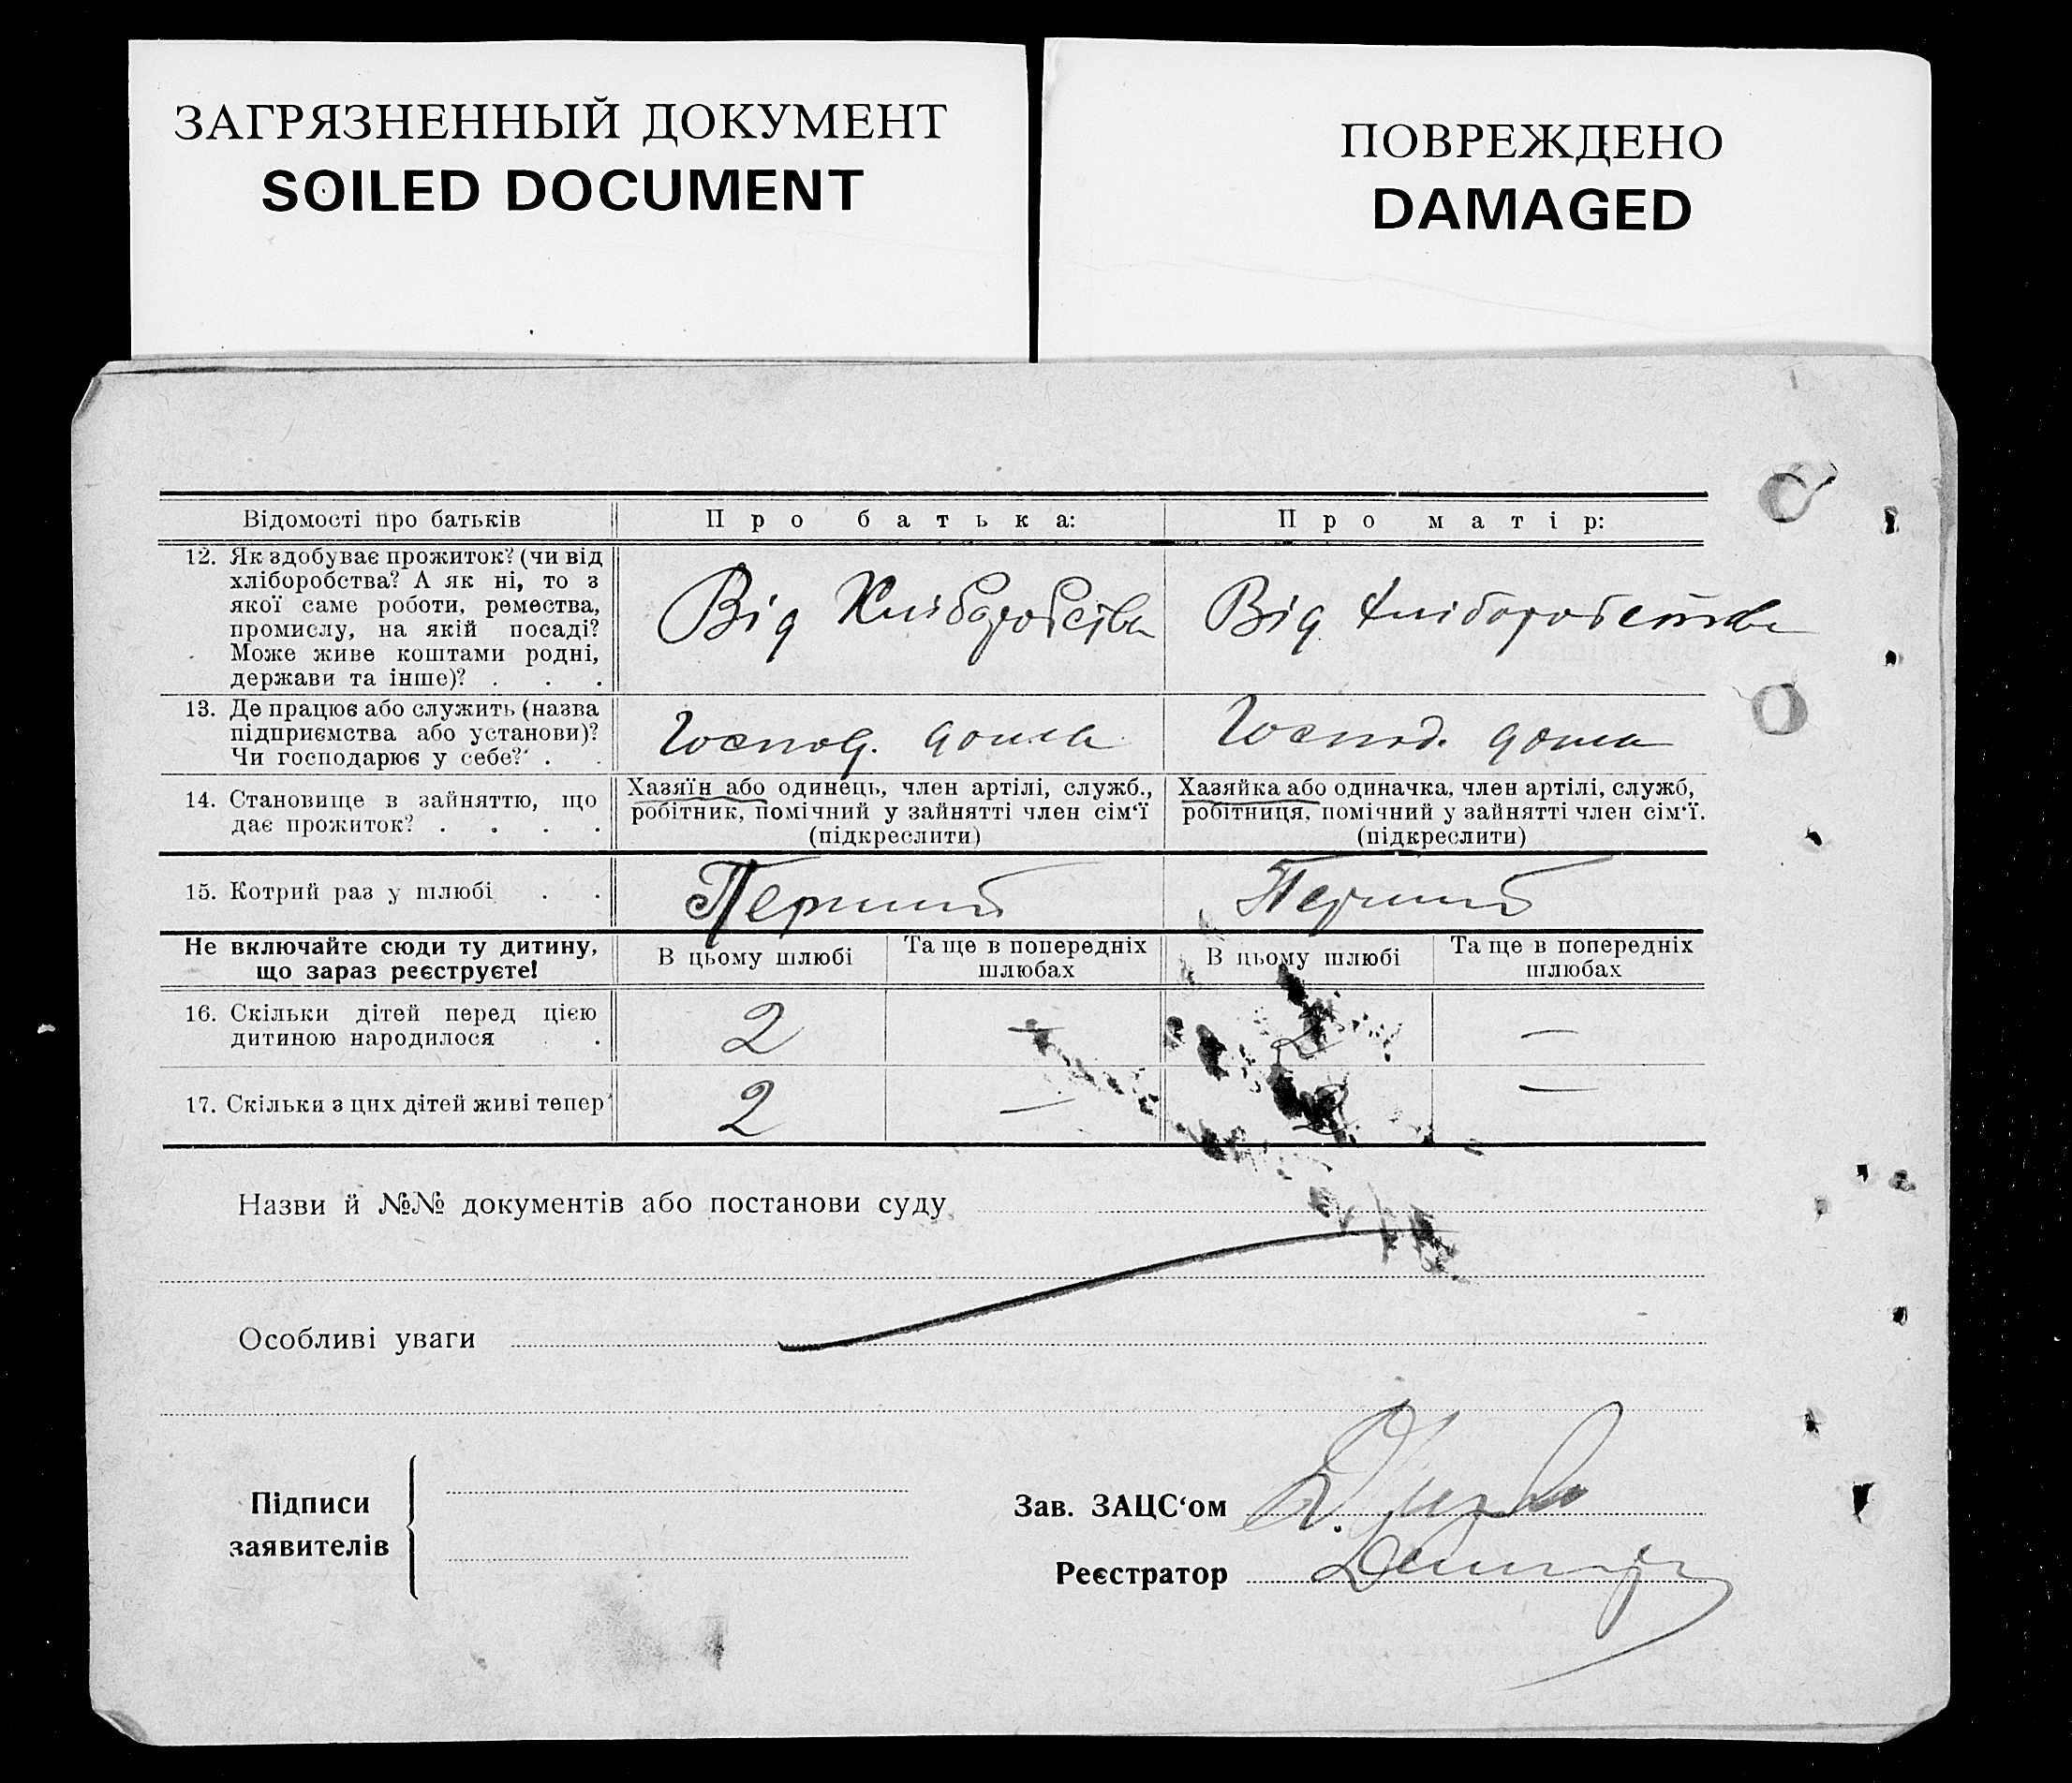 ЗАГРЯЗНЕННЫЙ ДОКУМЕНТ
SOILED DOCUMENT
ПОВРЕЖДЕНО
DAMAGED
Відомості про батьків
Про батька:
Про матір:
12. Як здобуває прожиток? (чи від
хліборобства? А як ні, то з
якої саме роботи, ремества,
промислу, на якій посаді?
Може живе коштами родні,
держави та інше)? . . .
Від Хліборобства
Від хліборобства
13. Де працює або служить (назва
підприємства або установи)?
Чи господарює у себе? . .
Господ. дома
Господ. дома
14. Становище в зайняттю, що
дає прожиток? . . . .
Хазяїн або одинець, член артілі, служб.,
робітник, помічний у зайнятті член сім'ї
(підкреслити)
Хазяйка або одиначка, член артілі, служб,
робітниця, помічний у зайнятті член сім'ї.
(підкреслити)
15. Котрий раз у шлюбі . .
Перший
Перший
Не включайте сюди ту дитину,
що зараз реєструєте!
В цьому шлюбі
Та ще в попередніх
шлюбах
В цьому шлюбі
Та ще в попередніх
шлюбах
16. Скільки дітей перед цією
дитиною народилося .
2
—
2
—
17. Скільки з цих дітей живі тепер
2
—
2
—
Назви й №№ документів або постанови суду
Особливі уваги
Підписи
заявителів
Зав. ЗАЦС'ом
Реєстратор